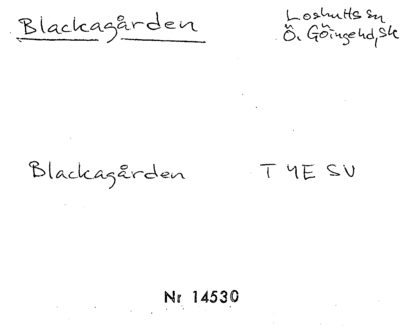 Blackagården
Loshults sn
Ö. Göingehd, Sk
Blackagården
T 4E SV
Nr 14530